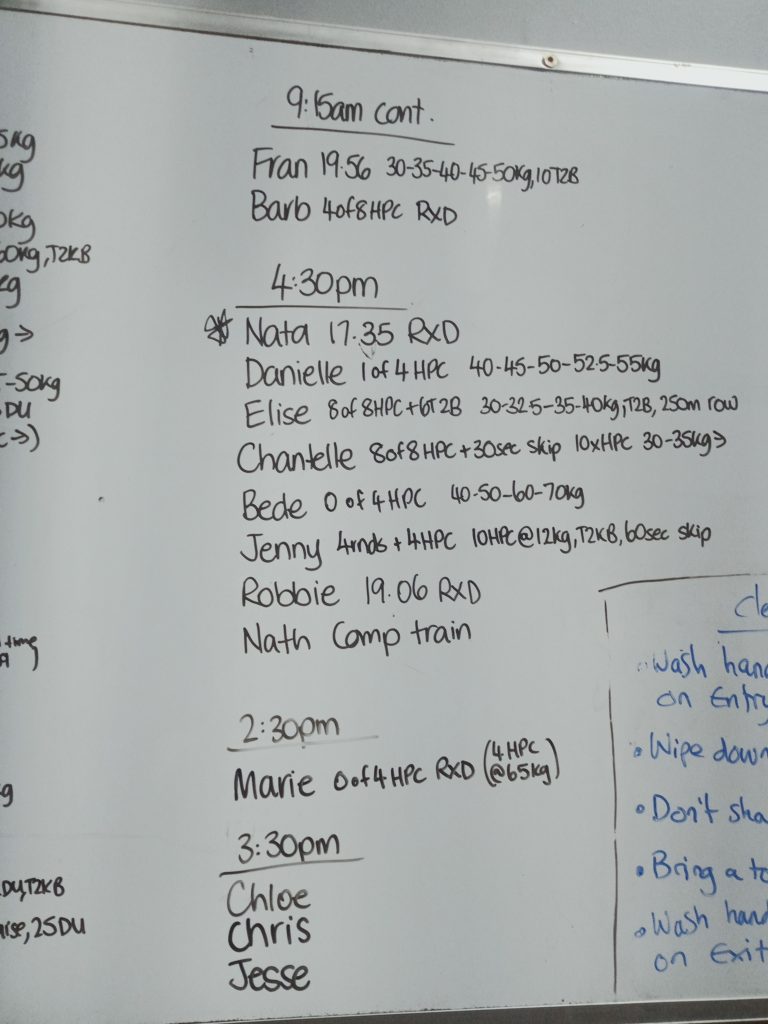 9:15am cont.
Fran 19.56 30-35-40-45-50kg, 10T2B
Barb 4of8HPC RXD
4:30pm
Nata 17.35 RXD
Danielle 1 of 4 HPC 40-45-50-52.5-55kg
Elise 8 of 8HPC+6T2B 30-32.5-35-40kg, T2B, 250m row
Chantelle 8of8HPC+30sec skip 10xHPC 30-35kg→
Bede 0 of 4 HPC 40-50-60-70kg
Jenny 4rnds + 4HPC 10HPC@12kg, T2KB, 60sec skip
Robbie 19.06 RXD
Nath Comp train
2:30pm
Marie 0of4HPC RXD (4HPC @65kg)
3:30pm
Chloe
Chris
Jesse
5kg
kg
0kg
60kg, T2KB
kg
→
-50kg
DU
→)
time
DU, T2KB
25DU
• Wash hand
on Entry
• Wipe down
• Don't sha
• Bring a to
• Wash hand
on Exit